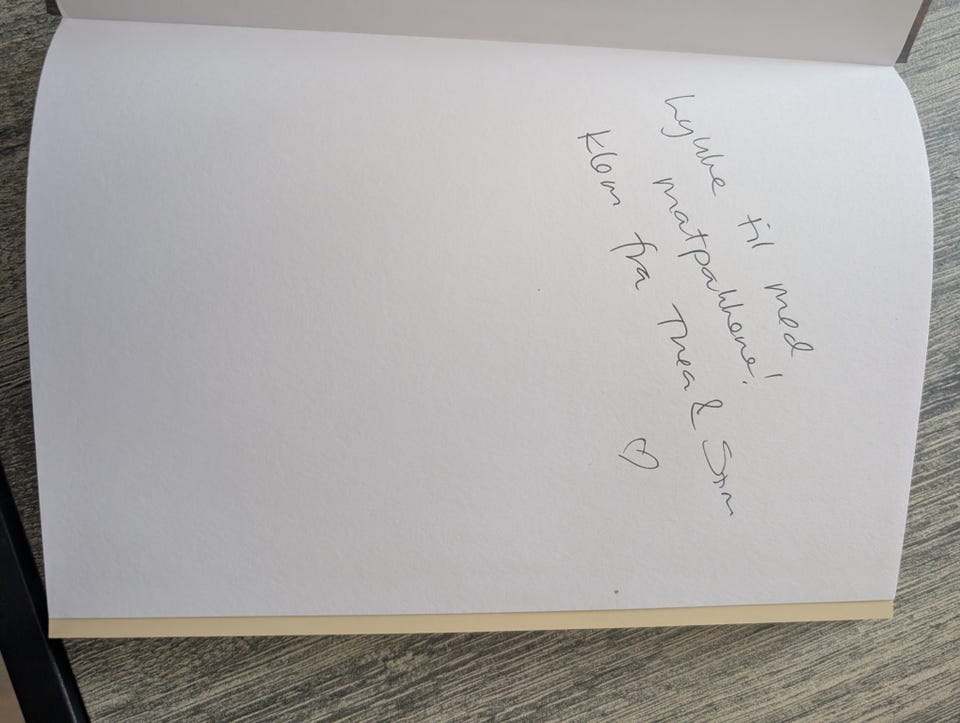 Lykke til med
matpakkene!
Klem fra Thea & Stin
♡